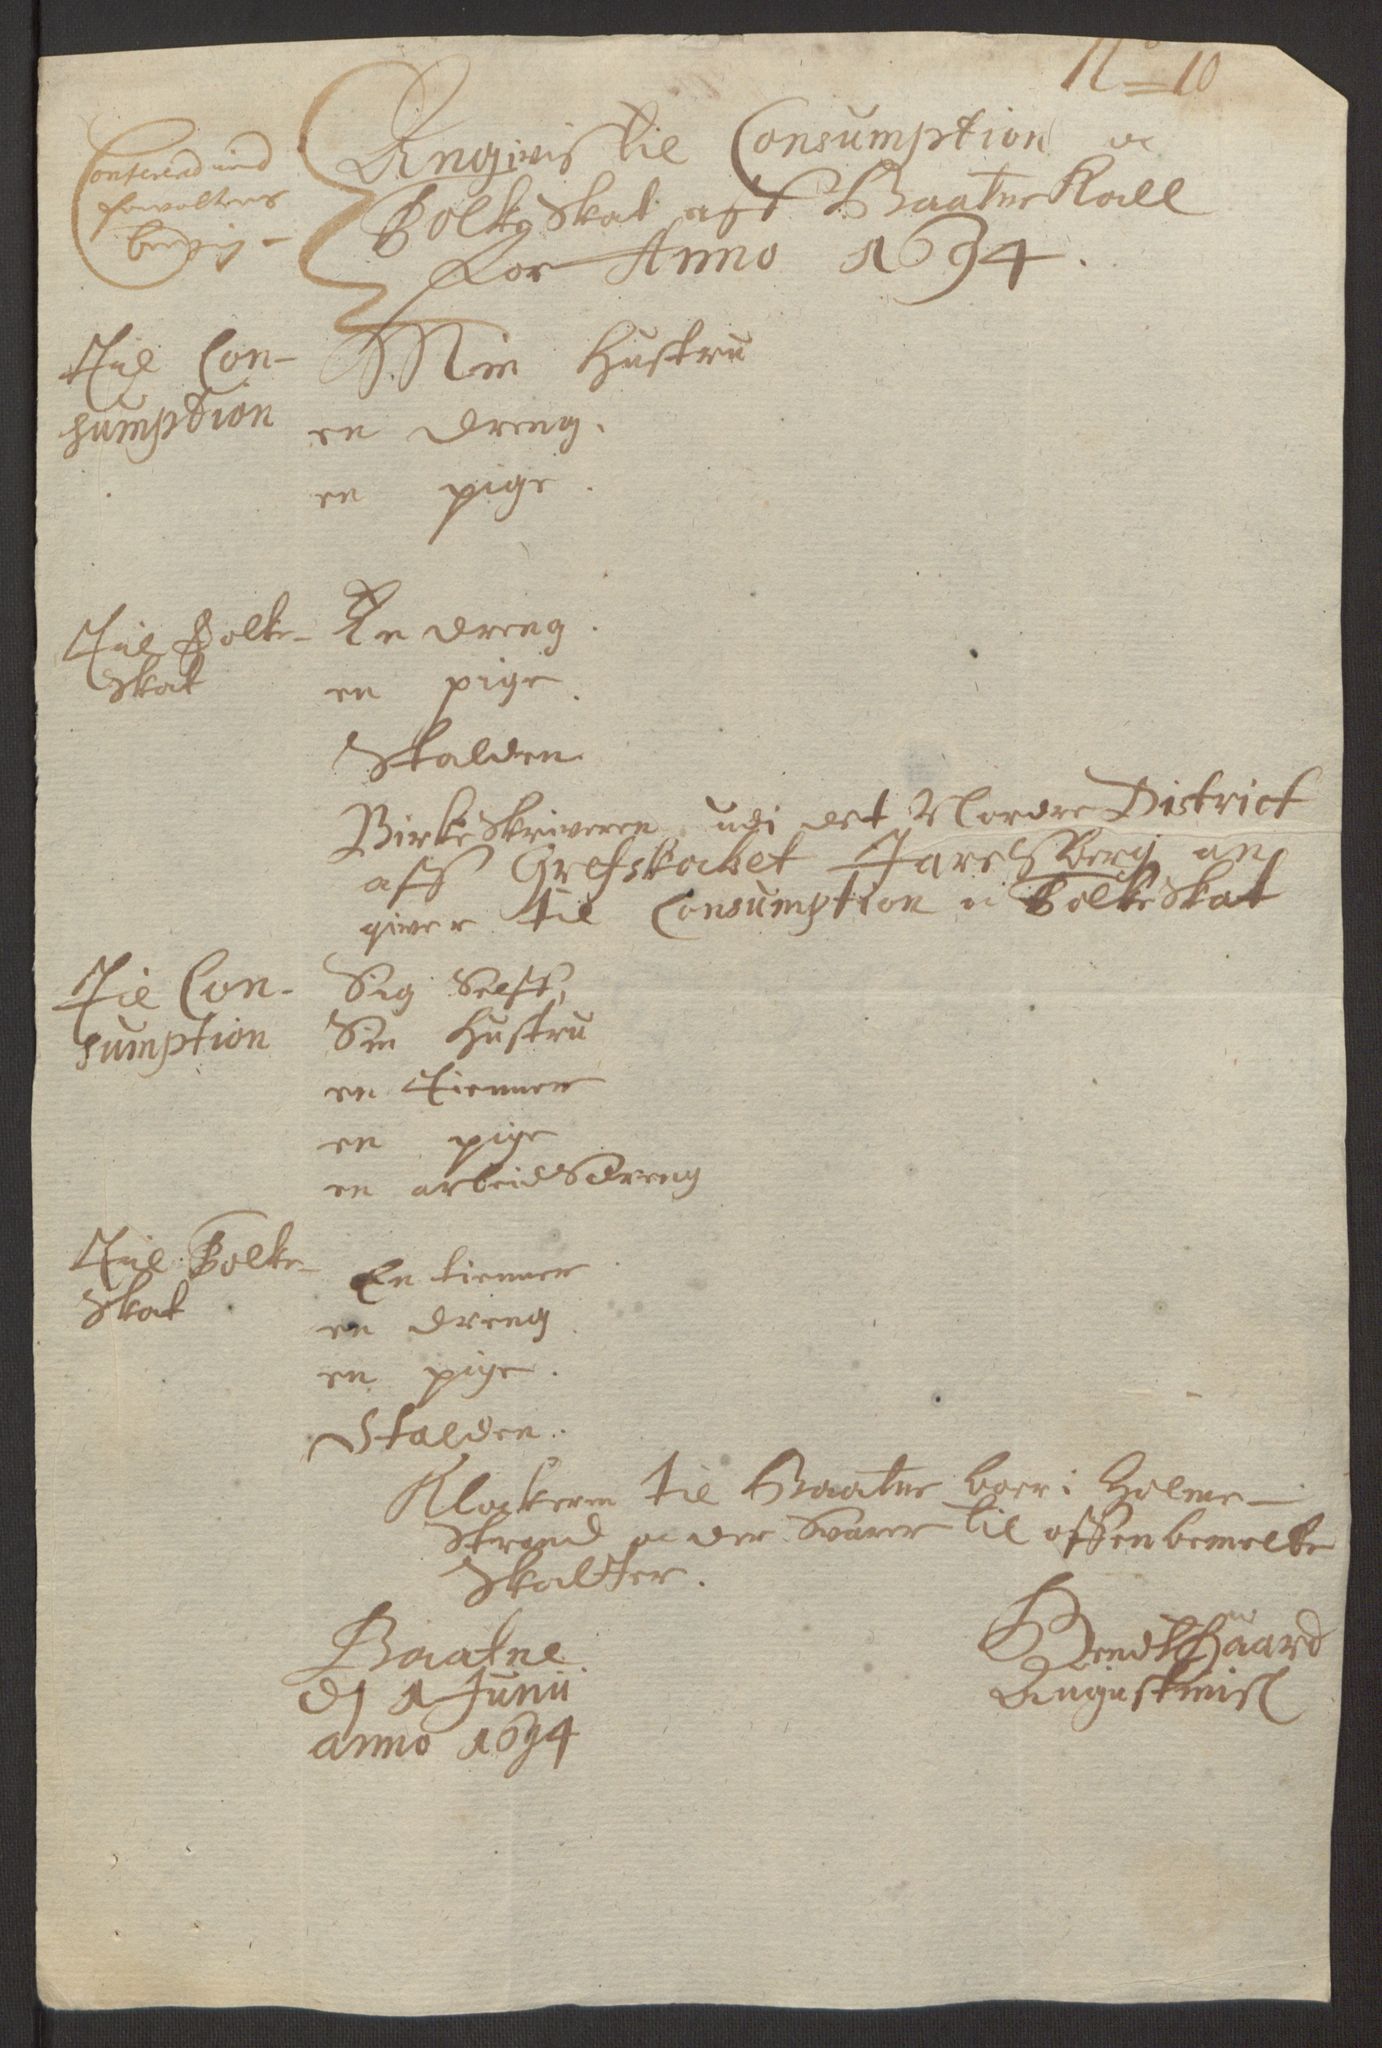 No 10
Angivis til Consumption oc
Folke Skat aff Baatne Kall
for Anno 1694.
Til Con-
sumption
Min Hustru
en dreng.
en pige.
Til Folke-
Skat
En dreng.
en pige.
Skolden
Birkeskriveren udi det Nordre District
aff Grefskabet Jarelsberg an
giver til Consumption oc Folke Skat
Til Con-
sumption
Sig Selff,
Sin Hustru
en Tienner
en pige
en arbeidsdreng
Til Folke-
Skat
En tienner
en dreng
en pige.
Klockeren til Baatne boer i Holme-
strand oc der Svarer til offuenbemelte
Skatter.
Baatne
dj 1 Junii
anno 1694
Bendt Haard
Augustinis